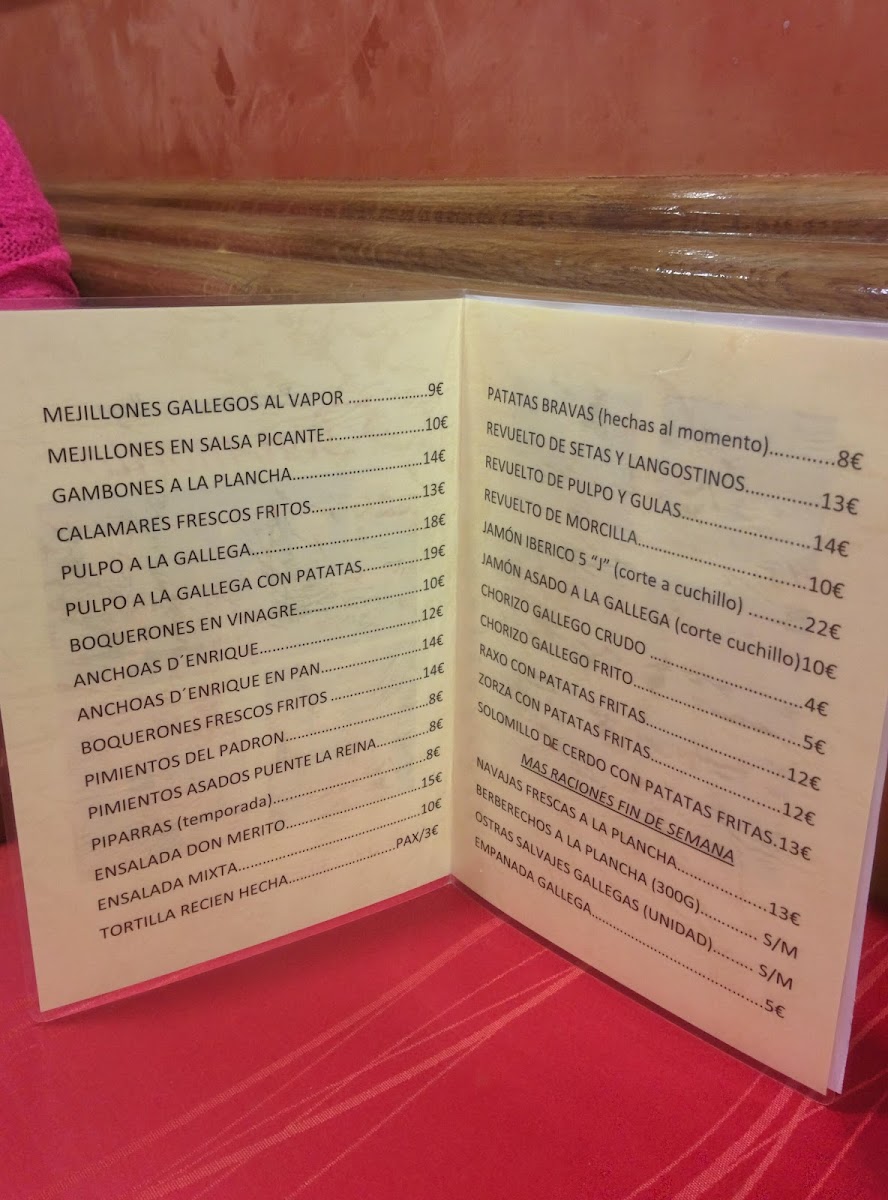 MEJILLONES GALLEGOS AL VAPOR ....................9€
MEJILLONES EN SALSA PICANTE.......................10€
GAMBONES A LA PLANCHA...............................14€
CALAMARES FRESCOS FRITOS..........................13€
PULPO A LA GALLEGA.......................................18€
PULPO A LA GALLEGA CON PATATAS...............19€
BOQUERONES EN VINAGRE.............................10€
ANCHOAS D´ENRIQUE......................................12€
ANCHOAS D´ENRIQUE EN PAN........................14€
BOQUERONES FRESCOS FRITOS .....................14€
PIMIENTOS DEL PADRON..................................8€
PIMIENTOS ASADOS PUENTE LA REINA.............8€
PIPARRAS (temporada).....................................8€
ENSALADA DON MERITO..................................15€
ENSALADA MIXTA............................................10€
TORTILLA RECIEN HECHA...........................PAX/3€
PATATAS BRAVAS (hechas al momento)............8€
REVUELTO DE SETAS Y LANGOSTINOS.............13€
REVUELTO DE PULPO Y GULAS........................14€
REVUELTO DE MORCILLA.................................10€
JAMÓN IBERICO 5 “J” (corte a cuchillo) ..........22€
JAMÓN ASADO A LA GALLEGA (corte cuchillo)10€
CHORIZO GALLEGO CRUDO ..............................4€
CHORIZO GALLEGO FRITO..................................5€
RAXO CON PATATAS FRITAS.............................12€
ZORZA CON PATATAS FRITAS...........................12€
SOLOMILLO DE CERDO CON PATATAS FRITAS.13€
MAS RACIONES FIN DE SEMANA
NAVAJAS FRESCAS A LA PLANCHA..................13€
BERBERECHOS A LA PLANCHA (300G)........... S/M
OSTRAS SALVAJES GALLEGAS (UNIDAD)........ S/M
EMPANADA GALLEGA.......................................5€